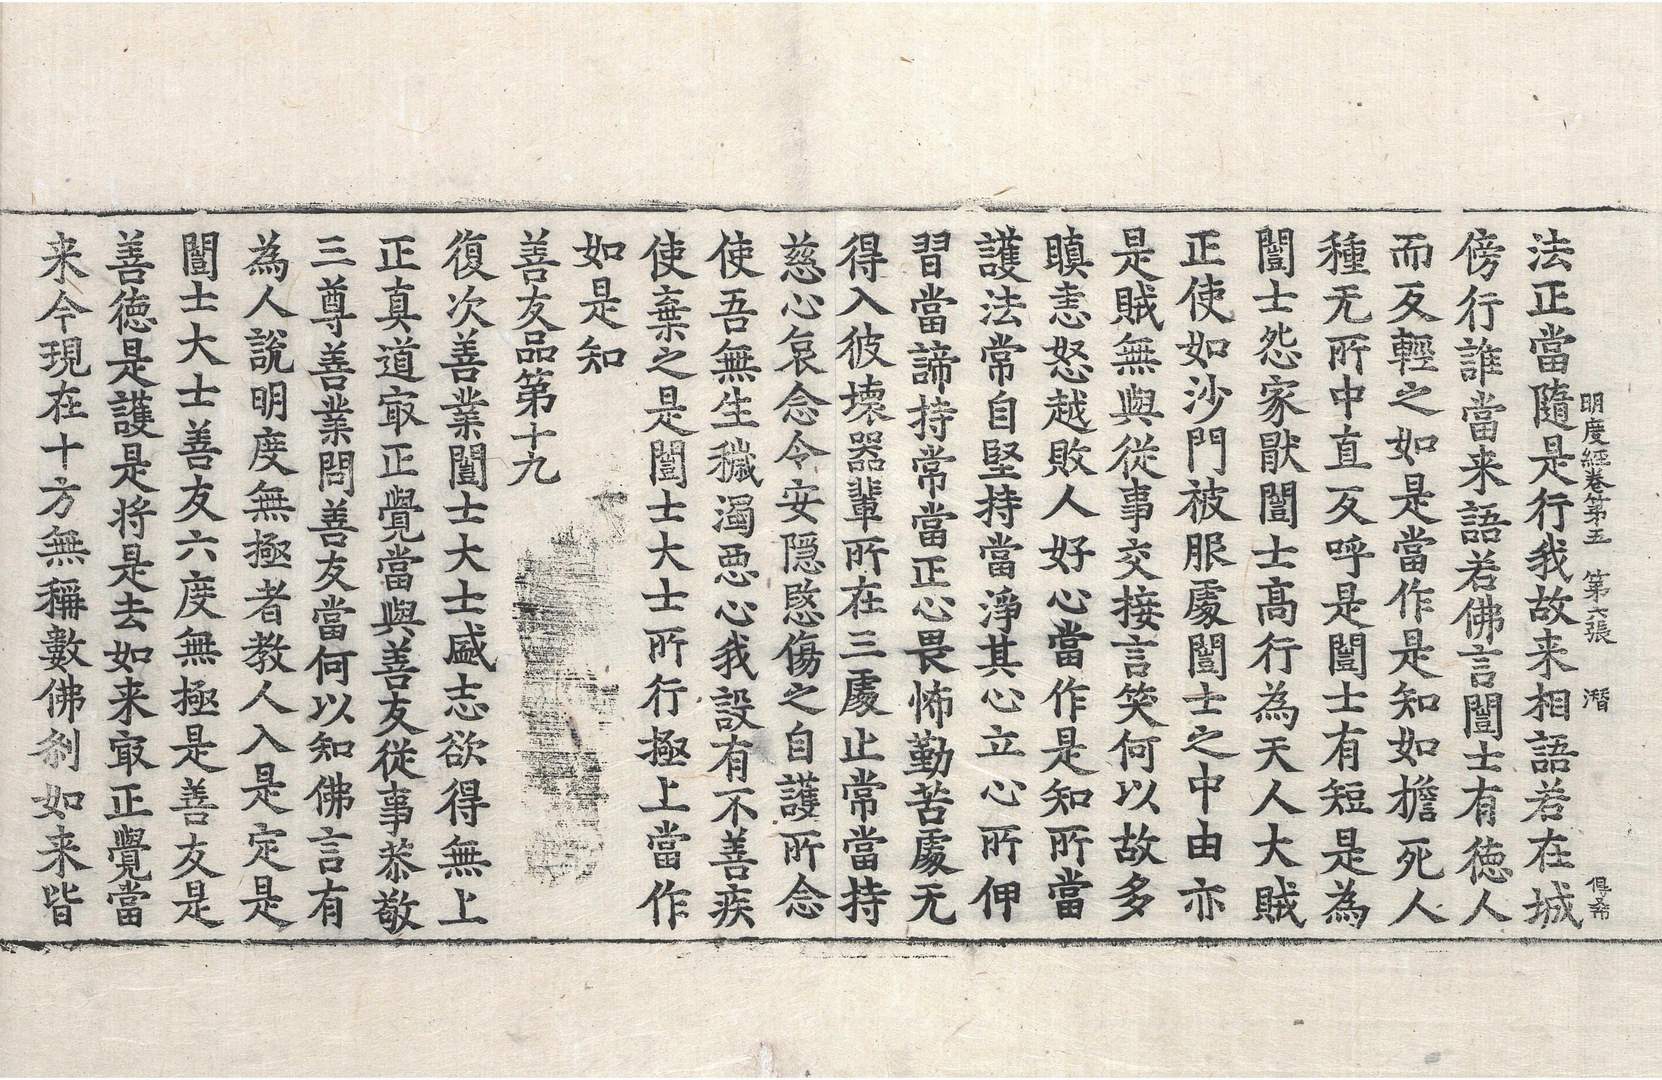 明度經卷第五　第六張　潛
法正當隨是行我故来相語若在城
傍行誰當来語若佛言闓士有徳人
而反輕之如是當作是知如擔死人
種无所中直反呼是闓士有短是為
闓士怨家猒闓士髙行為天人大賊
正使如沙門被服處闓士之中由亦
是賊無與從事交接言笑何以故多
瞋恚怒越敗人好心當作是知所當
護法常自堅持當淨其心立心所伸
習當諦持常當正心畏怖勤苦處无
得入彼壊器輩所在三處止常當持
慈心哀念令安隱愍傷之自護所念
使吾無生穢濁惡心我設有不善疾
使棄之是闓士大士所行極上當作
如是知
善友品第十九
復次善業闓士大士盛志欲得無上
正真道㝡正覺當與善友從事恭敬
三尊善業問善友當何以知佛言有
為人說明度無極者教人入是定是
闓士大士善友六度無極是善友是
善徳是護是将是去如来㝡正覺當
来今現在十方無稱數佛刹如来皆